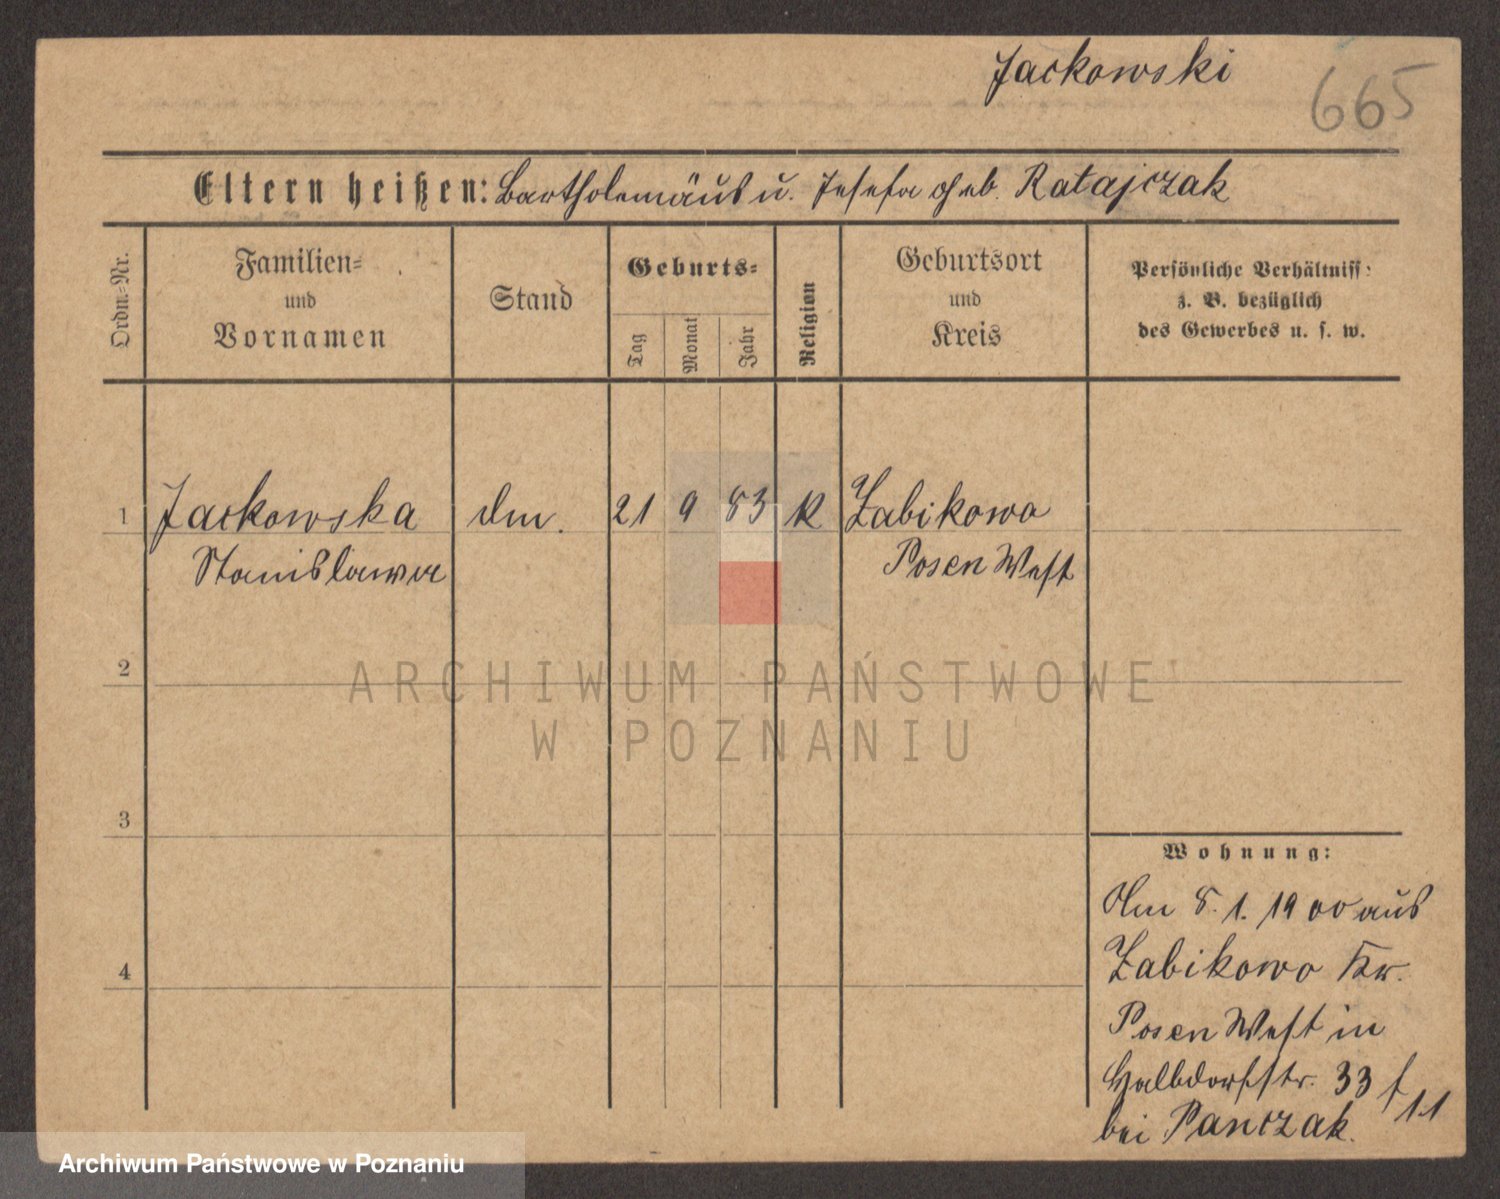 Jackowski
665
Eltern heißen: Bartholemäus u. Josefa geb. Ratajczak
Ordn.-Nr.
Familien-
und
Vornamen
Stand
Geburts-
Tag
Monat
Jahr
Religion
Geburtsort
und
Kreis
Persönliche Verhältniss:
z. B. bezüglich
des Gewerbes u. s. w.
1 Jackowska dm. 21 9 83 K Zabikowo
Stanislawa Posen West
2
ARCHIWUM PAŃSTWOWE
W POZNANIU
3
Wohnung:
Am 8. 1. 1900 aus
Zabikowo Kr.
4
Posen West in
Halbdorfstr. 33
bei Panczak.
Archiwum Państwowe w Poznaniu